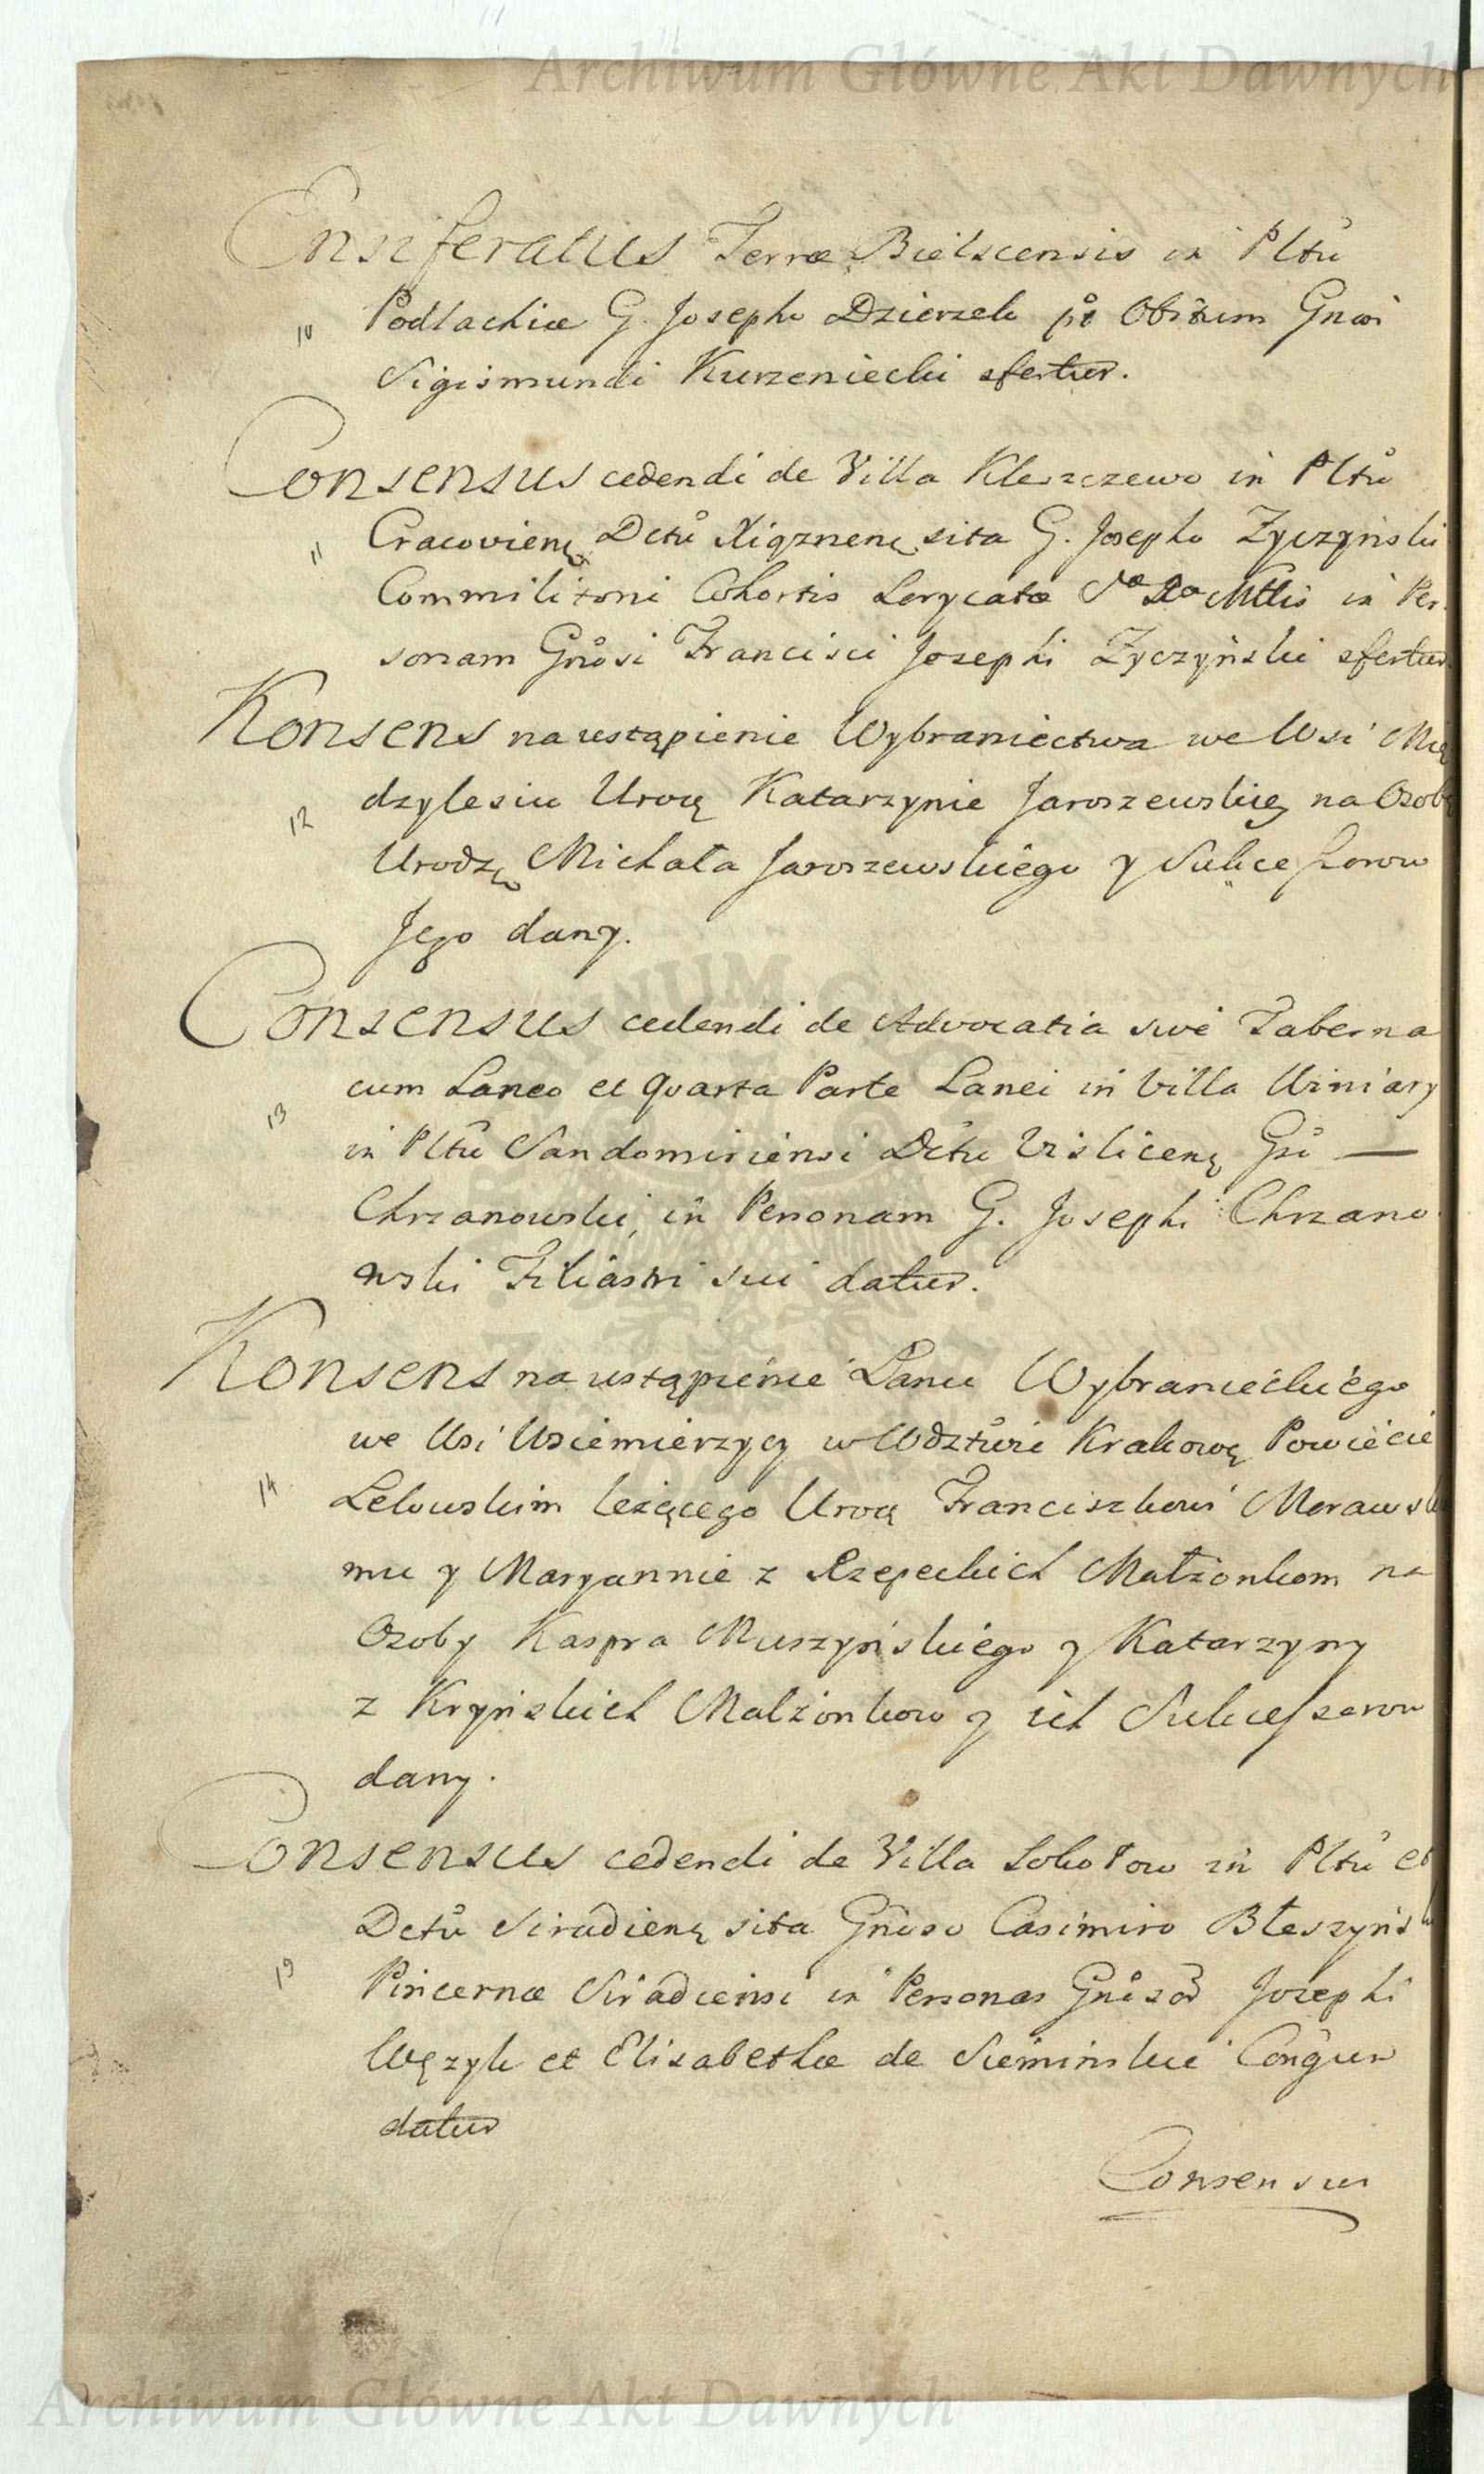 Archiwum Główne Akt Dawnych
Ensiferatus Terræ Bielscensis in Pltu
10 Podlachiæ G. Josepho Dzierzek pt Obitum Gnosi
Sigismundi Kurzeniecki sfertur.
Consensus cedendi de Villa Kleszczewo in Pltu
11 Cracovienę Dctu Xiąznenę sita G. Josepho Zyczyński
Commilitoni Cohortis Lorycatæ Sæ Ræ Mttis in Per-
sonam Gnosi Francisci Josephi Zyczyński sfertur
Konsens na ustąpienie Wybraniectwa we Wsi Mię
12 dzylesiu Urοę Katarzynie Jaroszewskiey na Osobę
Urodzo Michała Jaroszewskiego y Sukcessorow
Jego dany.
Consensus cedendi de Advocatia sive Taberna
13 cum Laneo et quarta Parte Lanei in Villa Winiary
in Pltu Sandomiriensi Dctu Vislicenę Gsi —
Chrzanowski, in Personam G. Josephi Chrzano
wski Filiastri sui datur.
Konsens na ustąpienie Łanu Wybranieckiego
we Wsi Wsiemierzycy w Wdztwie Krakowę Powiecie
14 Lelowskim leżącego Uroę Franciszkowi Morawski
mu y Maryannie z Rzepeckich Małżonkom na
Osoby Kaspra Muszyńskiego y Katarzyny
z Kryńskich Malżonkow y ich Sukcesszorow
dany.
Consensus cedendi de Villa Sokołow in Pltu et
Dctu Siradienę sita Gnoso Casimiro Błeszyńsk
15 Pincernæ Siradiensi in Personas Gnosor Josephi
Wężyk et Elisabethæ de Siemińskie Congum
datur
Consensus
Archiwum Główne Akt Dawnych